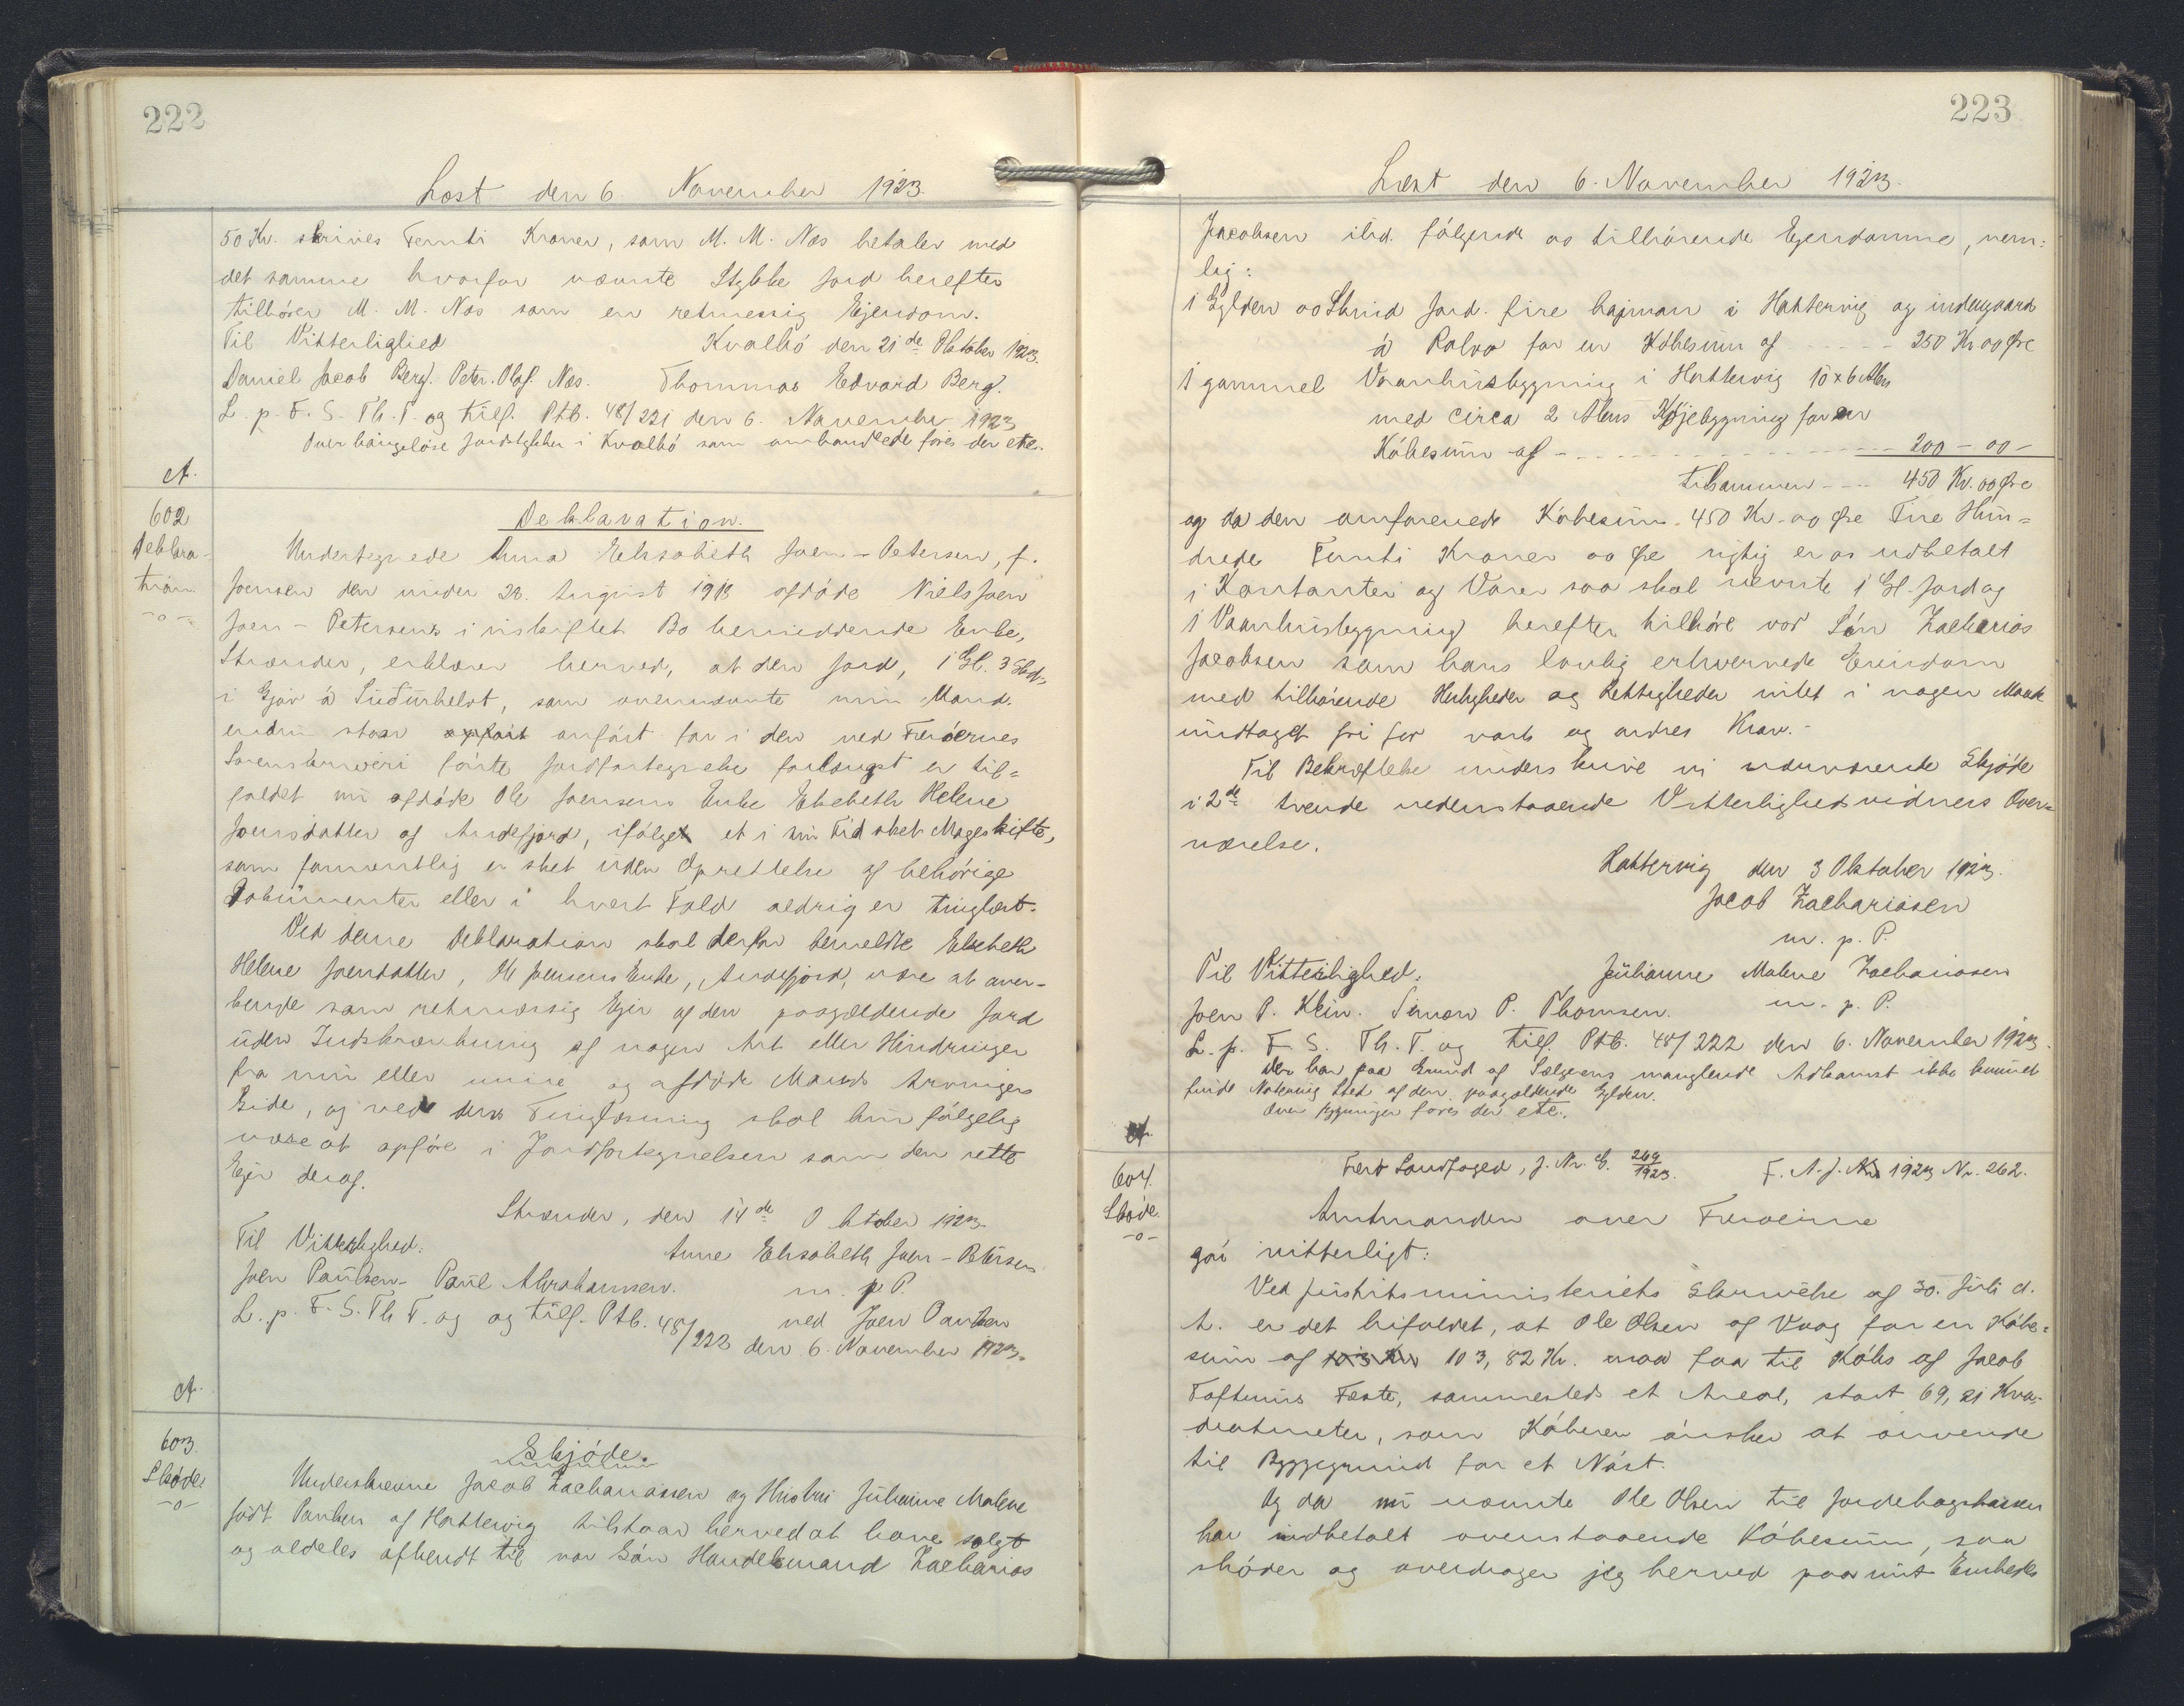 222
Læst den 6. November 1923.
50 Kr. skrives Femti Kroner, som M. M. Næs betaler med
det samme hvorfor nævnte Stykke Jord herefter
tilhører M. M. Næs som en retmessig Ejendom.
Til Vitterliglied Kvalbö den 21 de Oktober 1923.
Daniel Jacob Berg. Peter. Olaf. Næs. Thommas Edvard Berg.
L. p. F. S. Th. T. og tilf. Ptb. 48/221 den 6. November 1923
Over bøngeløse Jordstykker i Kvalbö som omhandlede føres der etc.
A.
602
Deklara-
tion
-o-
Deklaration.
Undertegnede Anna Elisabeth Joen-Petersen, f.
Joensen den under 28. August 1918 afdöde Niels Joen
Joen-Petersens i uskiftet Bo hensiddende Enke,
Strænder, erklærer herved, at den Jord, 1 Gl. 3 Skd.,
i Gjov á Suðurhelvt, som ovennævnte min Mand.
endnu staar opført anfört for i den ved Færöernes
Sorenskriveri förte Jordfortegnelse forlængst er til=
faldet nu afdöde Ole Joensens Enke Elsebeth Helene
Joensdatter af Andefjord, ifölge et i sin Tid sket Mageskifte,
som formentlig er sket uden Oprettelse af behörige
Dokumenter eller i hvert Fald aldrig er tinglæst.
Ved denne Deklaration skal derfor bemeldte Elsebeth
Helene Joensdatter, Ole Joensens Enke, Andefjord, være at aner-
kende som retmæssig Ejer af den paagældende Jord
uden Indskrænkning af nogen Art eller Hindringer
fra min eller mine og afdöde Mands Arvingers
Side, og ved dens Tinglæsning skal hun fölgelig
være at opföre i Jordfortegnelsen som den rette
Ejer deraf.
Strænder, den 14 de Oktober 1923.
Til Vitterlighed: Anne Elisabeth Joen-Petersen
Joen Paulsen- Paul Abrahamsen. m. p P.
ved Joen Paulsen
L. p. F. S. Th T. og og tilf. Ptb. 48/222 den 6. November 1923.
A.
603.
Sköde
-o-
Skjöde.
Underskrevne Jacob Zachariassen og Hustru Julianne Malene
födt Paulsen af Hattervig tilstaar herved at have solgt
og aldeles afhendt til vor Sön Handelsmand Zacharias
223
Læst den 6. November 1923.
Jacobsen ibd. fölgende os tilhörende Ejendomme, nem:
lig:
1 Gylden 00 Skind Jord. fire hajman i Hattervig og indengaard
á Rolvo for en Köbesum af ----- 250 Kr 00 Øre
1 gammel Vaanhusbygning i Hattervig 10 x 6 Alen
med circa 2 Alens Köjebygning for en
Köbesum af ---------- 200 - 00 -
tilsammen ---- 450 Kr. 00 Øre
og da den omforenede Köbesum 450 Kr. 00 Øre Fire Hun=
drede Femti Kroner 00 Øre rigtig er os udbetalt
i Kontanter og Varer saa skal nævnte 1 Gl. Jord og
1 Vaanhusbygning herefter tilhöre vor Sön Zacharias
Jacobsen som hans lovlig erhvervede Eiendom
med tilhörende Herligheder og Rettigheder intet i nogen Maade
undtaget fri for vorts og andres Krav.-
Til Bekræftelse underskrive vi nærværende Skjöde
i 2 de tvende nedenstaaende Vitterlighedsvidners Over=
værelse.
Hattervig den 3 Oktober 1923.
Jacob Zachariasen
m. p. P.
Til Vitterlighed. Julianne Malene Zachariasen
Joen P. Klein. Simon P. Thomsen. m. p. P.
L. p. F. S. Th. T. og tilf. Ptb. 48/222 den 6. November 1923.
der har paa Grund af Sælgerens manglende Adkomst ikke kunnet
finde Notering Sted af den paagældende Gylden.
Over Bygninger føres der etc.
A.
604.
Sköde.
-o-
Færö Landfoged, J. Nr. C. 269/1923. F. A. J. Nr 1923 Nr. 262.
Amtmanden over Færöerne
gör vitterligt:
Ved Justitsministeriets Skrivelse af 30. Juli d.
A. er det bifaldet, at Ole Olsen af Vaag for en Köbe=
sum af 103 Kr 103,82 Kr. maa faa til Köbs af Jacob
Toftums Fæste, sammesteds et Areal, stort 69,21 Kva-
dratmeter, som Köberen önsker at anvende
til Byggegrund for et Nöst.
Og da nu nævnte Ole Olsen til Jordebogskassen
har indbetalt ovenstaaende Köbesum, saa
sköder og overdrager jeg herved paa mit Embeds